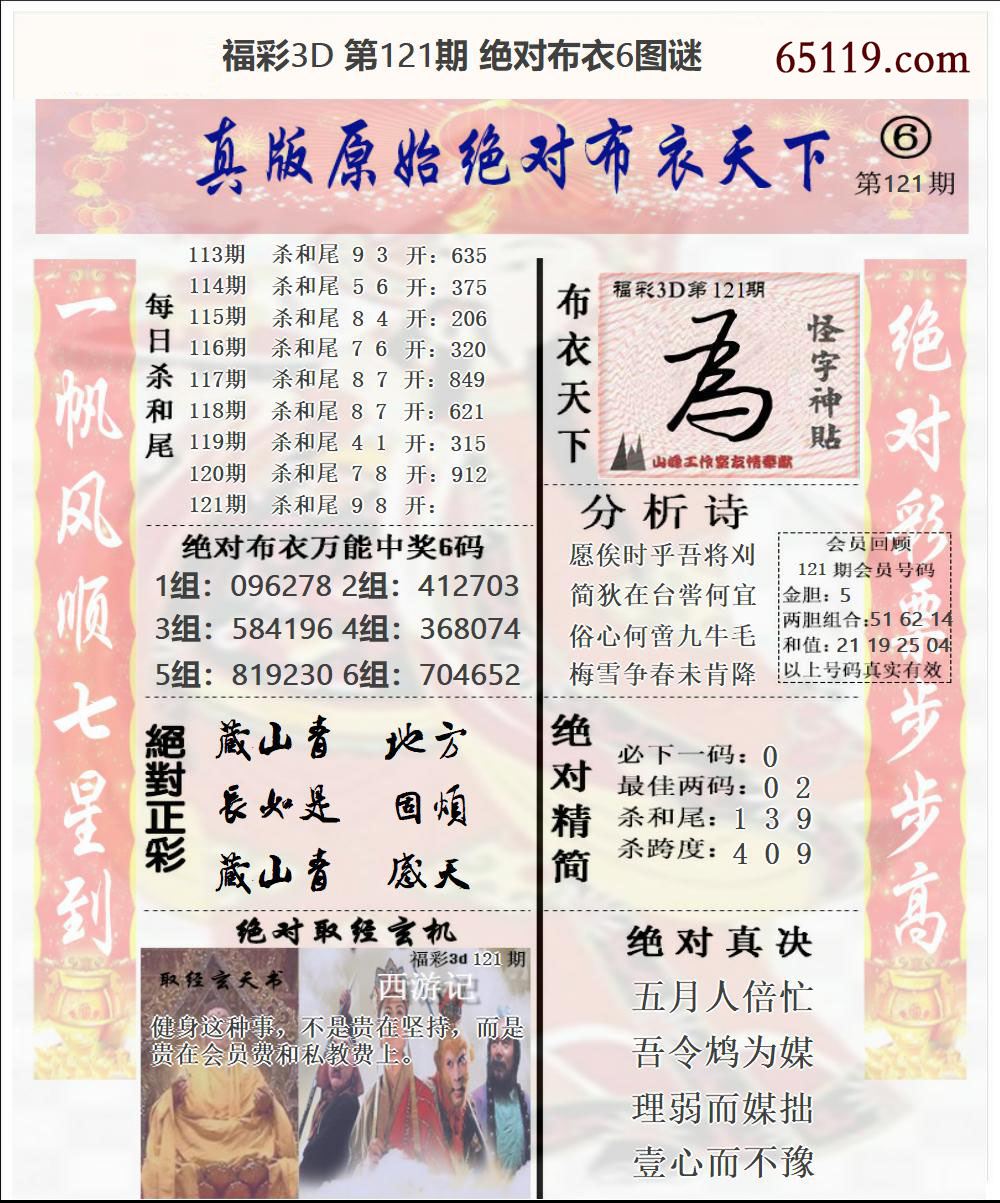 福彩3D 第121期 绝对布衣6图谜
65119.com
真版原始绝对布衣天下
⑥
第121期
一帆风顺七星到
每日杀和尾
113期 杀和尾 9 3 开：635
114期 杀和尾 5 6 开：375
115期 杀和尾 8 4 开：206
116期 杀和尾 7 6 开：320
117期 杀和尾 8 7 开：849
118期 杀和尾 8 7 开：621
119期 杀和尾 4 1 开：315
120期 杀和尾 7 8 开：912
121期 杀和尾 9 8 开：
绝对布衣万能中奖6码
1组：096278 2组：412703
3组：584196 4组：368074
5组：819230 6组：704652
絕對正彩
藏山青 地方
長如是 固煩
藏山青 感天
绝对取经玄机
福彩3d 121期
取经玄天书
西游记
健身这种事，不是贵在坚持，而是
贵在会员费和私教费上。
布衣天下
福彩3D第121期
為
怪字神貼
山峰工作室友情奉献
分析诗
愿俟时乎吾将刈
简狄在台喾何宜
俗心何啻九牛毛
梅雪争春未肯降
会员回顾
121期会员号码
金胆：5
两胆组合:51 62 14
和值：21 19 25 04
以上号码真实有效
绝对精简
必下一码：0
最佳两码：0 2
杀和尾：1 3 9
杀跨度：4 0 9
绝对真决
五月人倍忙
吾令鸩为媒
理弱而媒拙
壹心而不豫
绝对彩票步步高